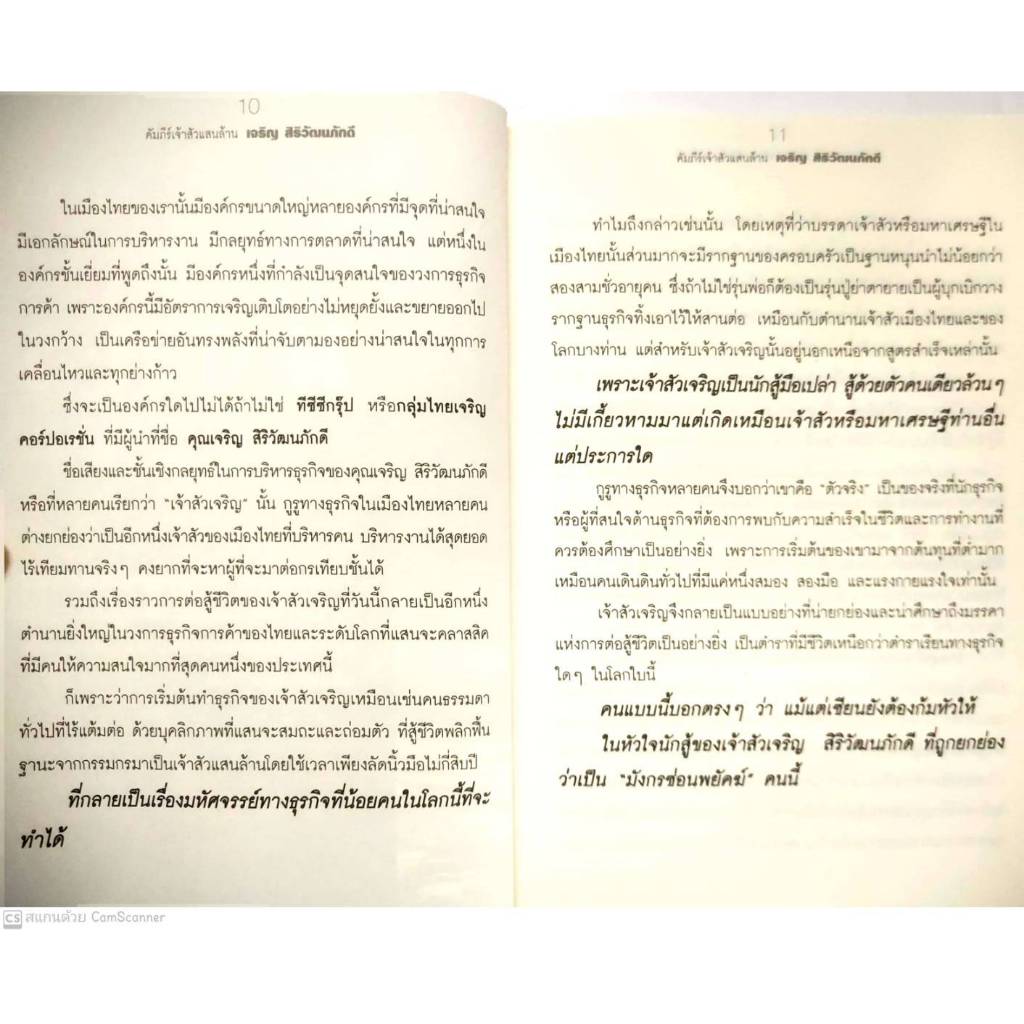 10
คัมภีร์เจ้าสัวแสนล้าน เจริญ สิริวัฒนภักดี
ในเมืองไทยของเรานั้นมีองค์กรขนาดใหญ่หลายองค์กรที่มีจุดที่น่าสนใจ
มีเอกลักษณ์ในการบริหารงาน มีกลยุทธ์ทางการตลาดที่น่าสนใจ แต่หนึ่งใน
องค์กรชั้นเยี่ยมที่พูดถึงนั้น มีองค์กรหนึ่งที่กำลังเป็นจุดสนใจของวงการธุรกิจ
การค้า เพราะองค์กรนี้มีอัตราการเจริญเติบโตอย่างไม่หยุดยั้งและขยายออกไป
ในวงกว้าง เป็นเครือข่ายอันทรงพลังที่น่าจับตามองอย่างน่าสนใจในทุกการ
เคลื่อนไหวและทุกย่างก้าว
ซึ่งจะเป็นองค์กรใดไปไม่ได้ถ้าไม่ใช่ ทีซีซีกรุ๊ป หรือกลุ่มไทยเจริญ
คอร์ปอเรชั่น ที่มีผู้นำที่ชื่อ คุณเจริญ สิริวัฒนภักดี
ชื่อเสียงและชั้นเชิงกลยุทธ์ในการบริหารธุรกิจของคุณเจริญ สิริวัฒนภักดี
หรือที่หลายคนเรียกว่า "เจ้าสัวเจริญ" นั้น กูรูทางธุรกิจในเมืองไทยหลายคน
ต่างยกย่องว่าเป็นอีกหนึ่งเจ้าสัวของเมืองไทยที่บริหารคน บริหารงานได้สุดยอด
ไร้เทียมทานจริงๆ คงยากที่จะหาผู้ที่จะมาต่อกรเทียบชั้นได้
รวมถึงเรื่องราวการต่อสู้ชีวิตของเจ้าสัวเจริญที่วันนี้กลายเป็นอีกหนึ่ง
ตำนานยิ่งใหญ่ในวงการธุรกิจการค้าของไทยและระดับโลกที่แสนจะคลาสสิค
ที่มีคนให้ความสนใจมากที่สุดคนหนึ่งของประเทศนี้
ก็เพราะว่าการเริ่มต้นทำธุรกิจของเจ้าสัวเจริญเหมือนเช่นคนธรรมดา
ทั่วไปที่ไร้แต้มต่อ ด้วยบุคลิกภาพที่แสนจะสมถะและถ่อมตัว ที่สู้ชีวิตพลิกฟื้น
ฐานะจากกรรมกรมาเป็นเจ้าสัวแสนล้านโดยใช้เวลาเพียงลัดนิ้วมือไม่กี่สิบปี
ที่กลายเป็นเรื่องมหัศจรรย์ทางธุรกิจที่น้อยคนในโลกนี้ที่จะ
ทำได้
11
คัมภีร์เจ้าสัวแสนล้าน เจริญ สิริวัฒนภักดี
ทำไมถึงกล่าวเช่นนั้น โดยเหตุที่ว่าบรรดาเจ้าสัวหรือมหาเศรษฐีใน
เมืองไทยนั้นส่วนมากจะมีรากฐานของครอบครัวเป็นฐานหนุนนำไม่น้อยกว่า
สองสามชั่วอายุคน ซึ่งถ้าไม่ใช่รุ่นพ่อก็ต้องเป็นรุ่นปู่ย่าตายายเป็นผู้บุกเบิกวาง
รากฐานธุรกิจทิ้งเอาไว้ให้สานต่อ เหมือนกับตำนานเจ้าสัวเมืองไทยและของ
โลกบางท่าน แต่สำหรับเจ้าสัวเจริญนั้นอยู่นอกเหนือจากสูตรสำเร็จเหล่านั้น
เพราะเจ้าสัวเจริญเป็นนักสู้มือเปล่า สู้ด้วยตัวคนเดียวล้วนๆ
ไม่มีเกี้ยวหามมาแต่เกิดเหมือนเจ้าสัวหรือมหาเศรษฐีท่านอื่น
แต่ประการใด
กูรูทางธุรกิจหลายคนจึงบอกว่าเขาคือ "ตัวจริง" เป็นของจริงที่นักธุรกิจ
หรือผู้ที่สนใจด้านธุรกิจที่ต้องการพบกับความสำเร็จในชีวิตและการทำงานที่
ควรต้องศึกษาเป็นอย่างยิ่ง เพราะการเริ่มต้นของเขามาจากต้นทุนที่ต่ำมาก
เหมือนคนเดินดินทั่วไปที่มีแค่หนึ่งสมอง สองมือ และแรงกายแรงใจเท่านั้น
เจ้าสัวเจริญจึงกลายเป็นแบบอย่างที่น่ายกย่องและน่าศึกษาถึงมรรคา
แห่งการต่อสู้ชีวิตเป็นอย่างยิ่ง เป็นตำราที่มีชีวิตเหนือกว่าตำราเรียนทางธุรกิจ
ใดๆ ในโลกใบนี้
คนแบบนี้บอกตรงๆ ว่า แม้แต่เซียนยังต้องก้มหัวให้
ในหัวใจนักสู้ของเจ้าสัวเจริญ สิริวัฒนภักดี ที่ถูกยกย่อง
ว่าเป็น "มังกรซ่อนพยัคฆ์" คนนี้
CS สแกนด้วย CamScanner